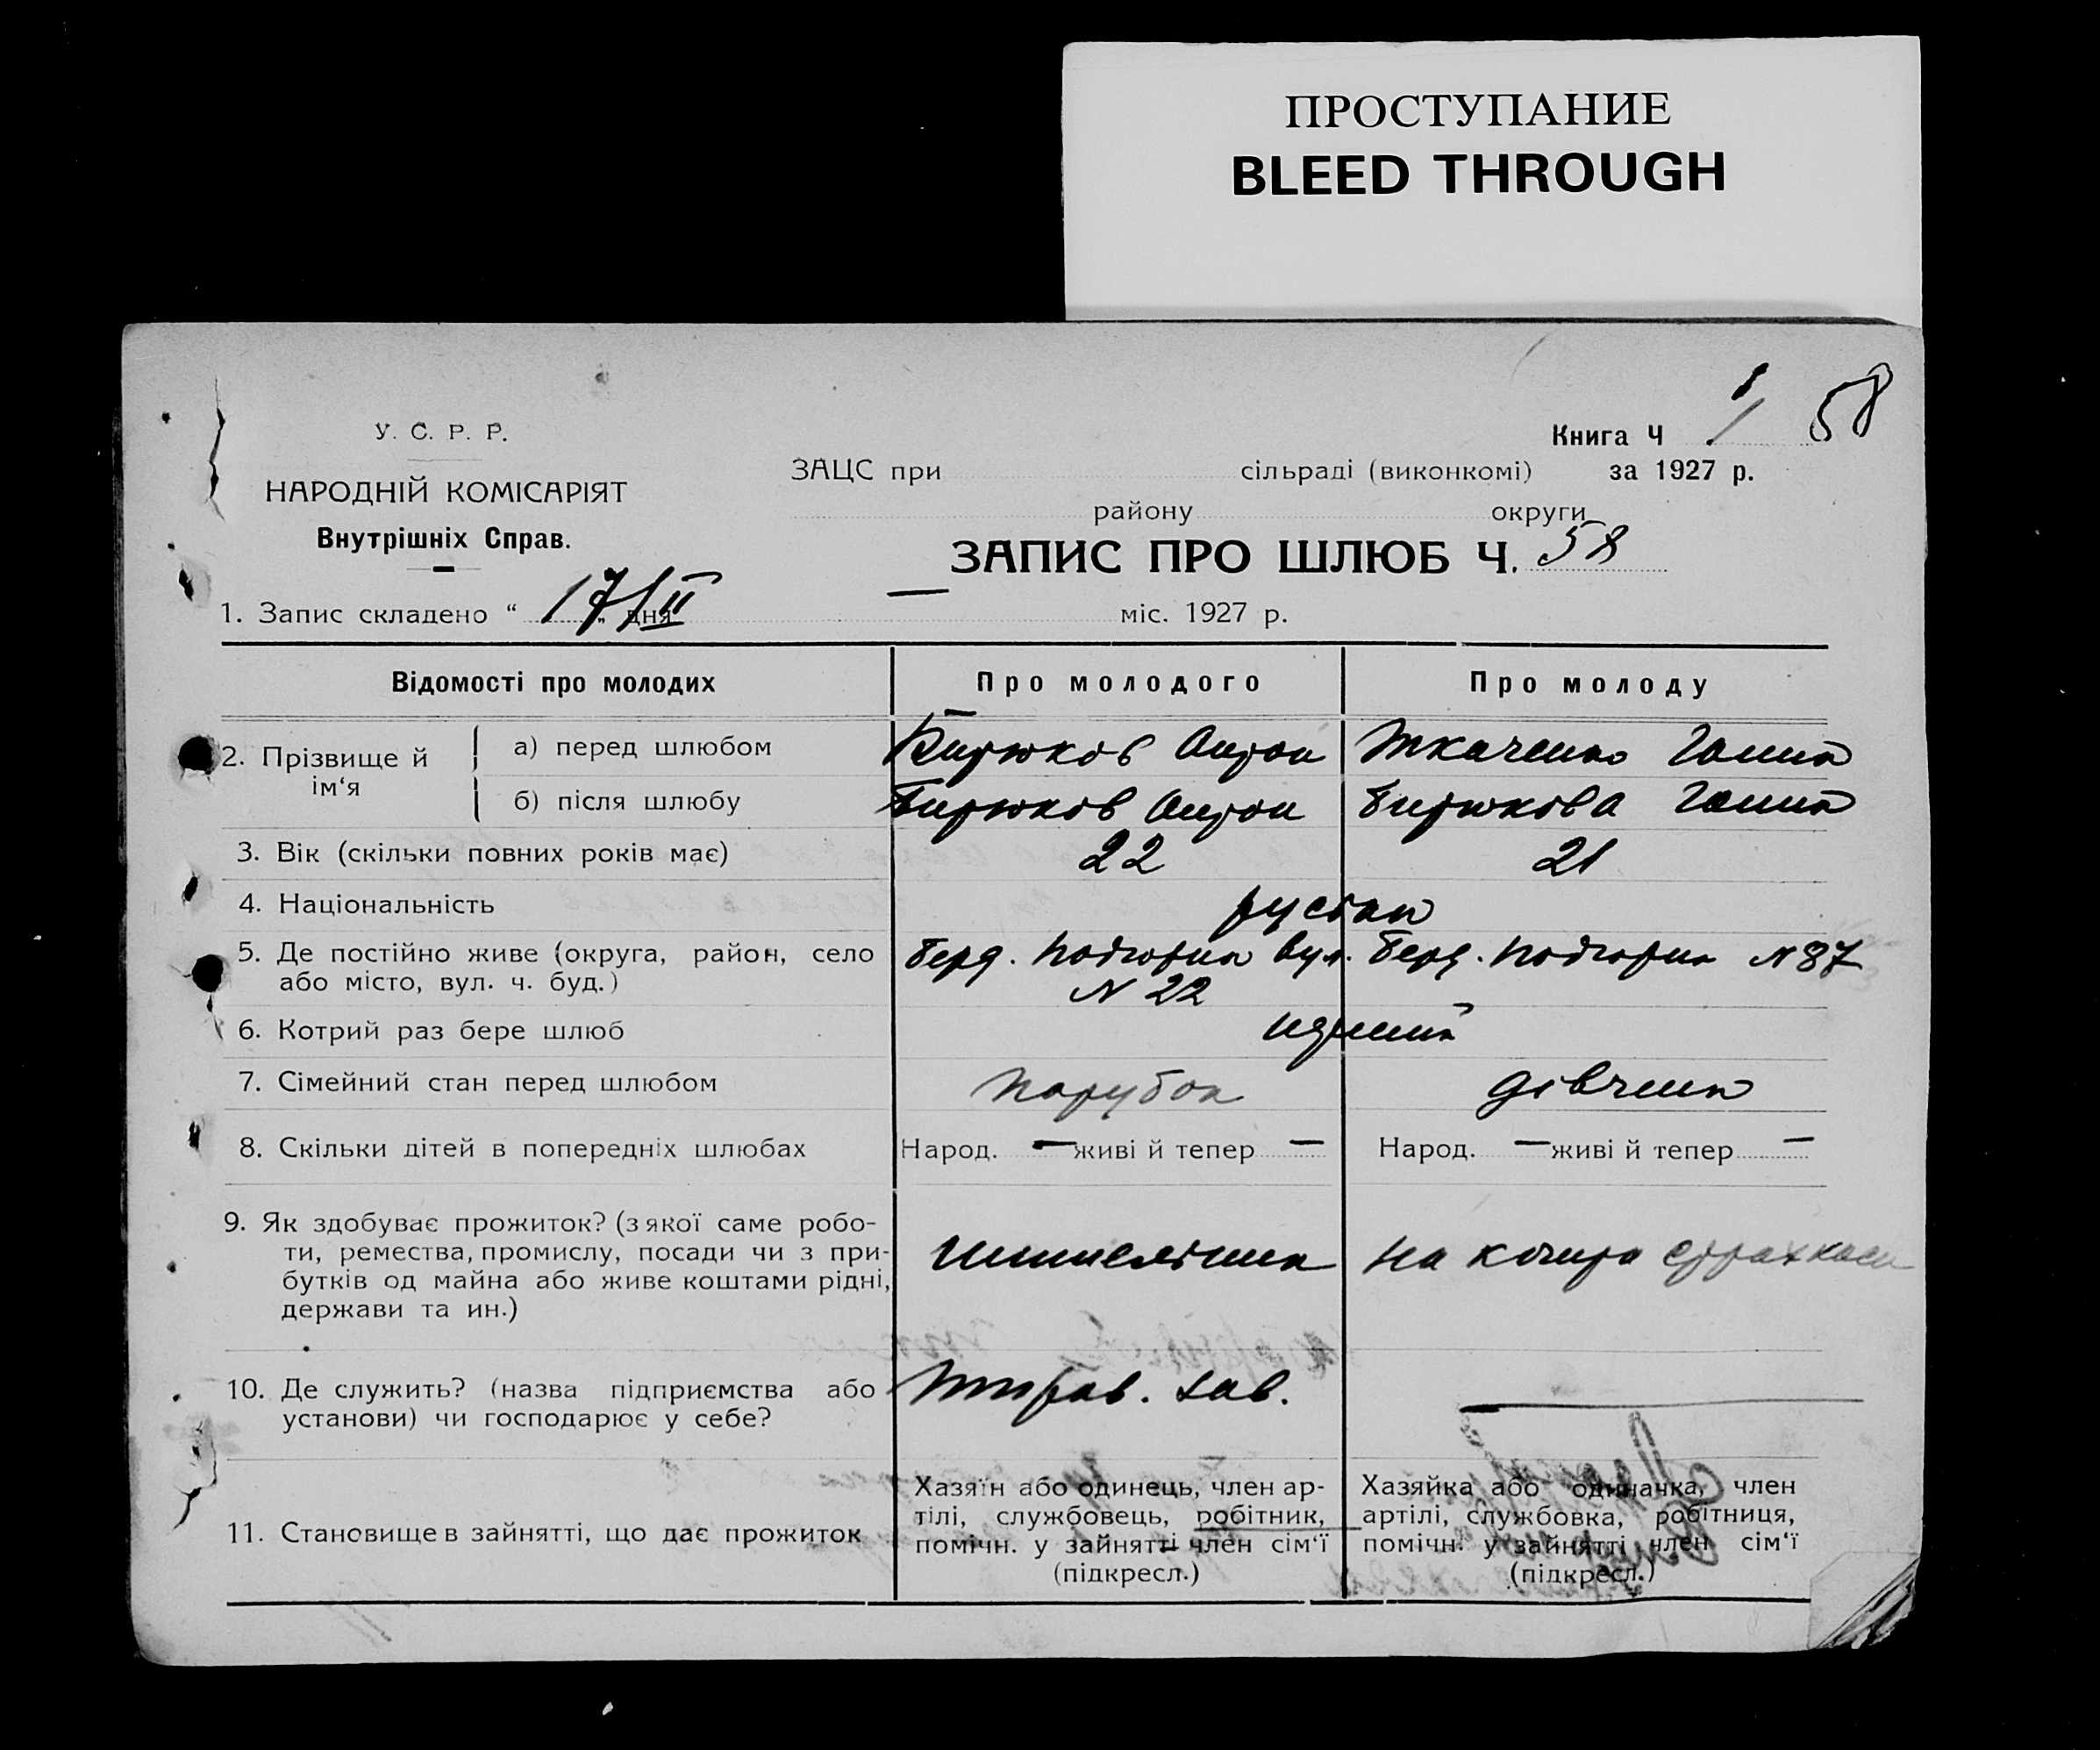 ПРОСТУПАНИЕ
BLEED THROUGH
1 58
У. С. Р. Р.
НАРОДНІЙ КОМІСАРІЯТ
Внутрішніх Справ.
Книга Ч
ЗАЦС при сільраді (виконкомі) за 1927 р.
району округи
ЗАПИС ПРО ШЛЮБ Ч. 58
1. Запис складено “ 17/II „ дня міс. 1927 р.
Відомості про молодих Про молодого Про молоду
2. Прізвище й ім‘я
а) перед шлюбом Бирюков Антон Ткаченко Ганна
б) після шлюбу Бирюков Антон Бирюкова Ганна
3. Вік (скільки повних років має) 22 21
4. Національність
5. Де постійно живе (округа, район, село або місто, вул. ч. буд.)
Берд. вул. N 22
Берд. N 87
6. Котрий раз бере шлюб
7. Сімейний стан перед шлюбом парубок дівчина
8. Скільки дітей в попередніх шлюбах Народ. — живі й тепер — Народ. — живі й тепер —
9. Як здобуває прожиток? (з якої саме робо-
ти, ремества, промислу, посади чи з при-
бутків од майна або живе коштами рідні,
держави та ин.)
на
10. Де служить? (назва підприємства або
установи) чи господарює у себе?
зав. —
11. Становище в зайнятті, що дає прожиток
Хазяїн або одинець, член ар-
тілі, службовець, робітник,
помічн. у зайнятті член сім‘ї
(підкресл.)
Хазяйка або одиначка, член
артілі, службовка, робітниця,
помічн. у зайнятті член сім‘ї
(підкресл.)